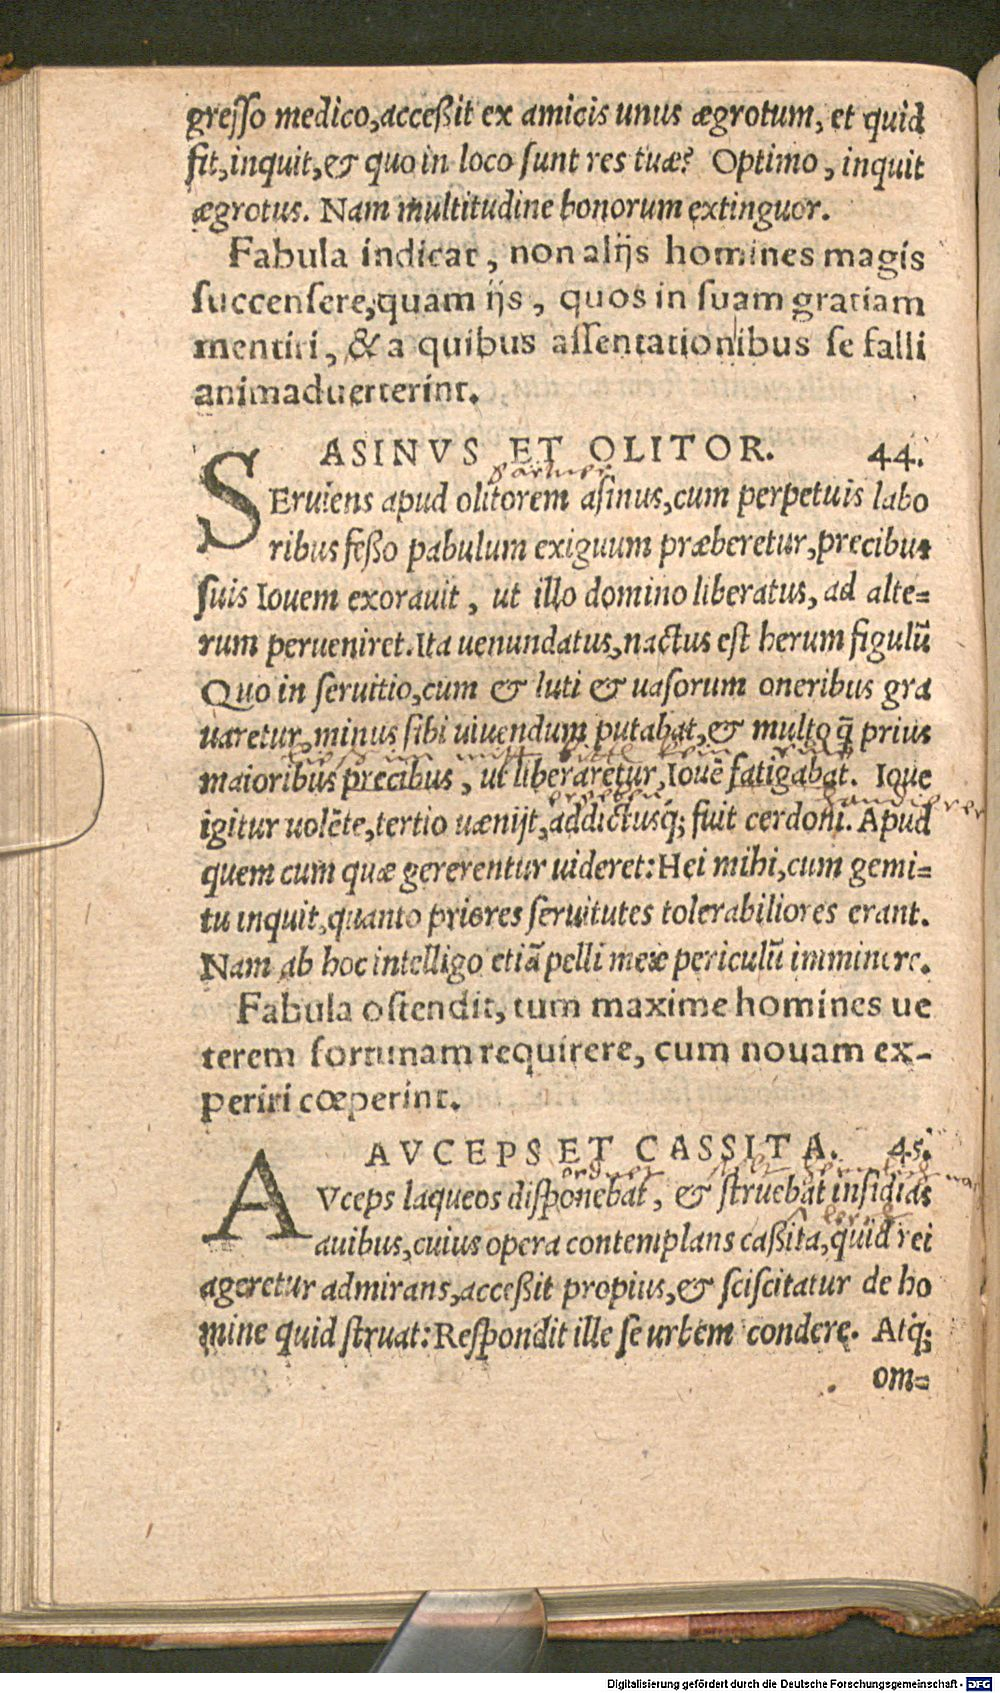 gresso medico, acceßit ex amicis unus ægrotum, et quid
fit, inquit, & quo in loco sunt res tuæ? Optimo, inquit
ægrotus. Nam multitudine bonorum extinguor.
Fabula indicat, non alijs homines magis
succensere, quam ijs, quos in suam gratiam
mentiri, & a quibus assentationibus se falli
animaduerterint.
ASINVS ET OLITOR. 44.
gärtner
SEruiens apud olitorem asinus, cum perpetuis labo
ribus feßo pabulum exiguum præberetur, precibus
suis Iouem exorauit, ut illo domino liberatus, ad alte=
rum perueniret. Ita uenundatus, nactus est herum figulū
Quo in seruitio, cum & luti & uasorum oneribus gra
uaretur, minus sibi uiuendum putabat, & multo q̄ prius
maioribus precibus, ut liberaretur, Iouē fatigabat. Ioue
igitur uolēte, tertio uænijt, addictusq; fuit cerdoni. Apud
quem cum quæ gererentur uideret: Hei mihi, cum gemi=
tu inquit, quanto priores seruitutes tolerabiliores erant.
Nam ab hoc intelligo etiā pelli meæ periculū imminere.
Fabula ostendit, tum maxime homines ue
terem fortunam requirere, cum nouam ex-
periri cœperint.
AVCEPS ET CASSITA. 45.
ordnet
AVceps laqueos disponebat, & struebat insidias
auibus, cuius opera contemplans caßita, quid rei
ageretur admirans, acceßit propius, & sciscitatur de ho
mine quid struat: Respondit ille se urbem condere. Atq;
om=
Digitalisierung gefördert durch die Deutsche Forschungsgemeinschaft - DFG